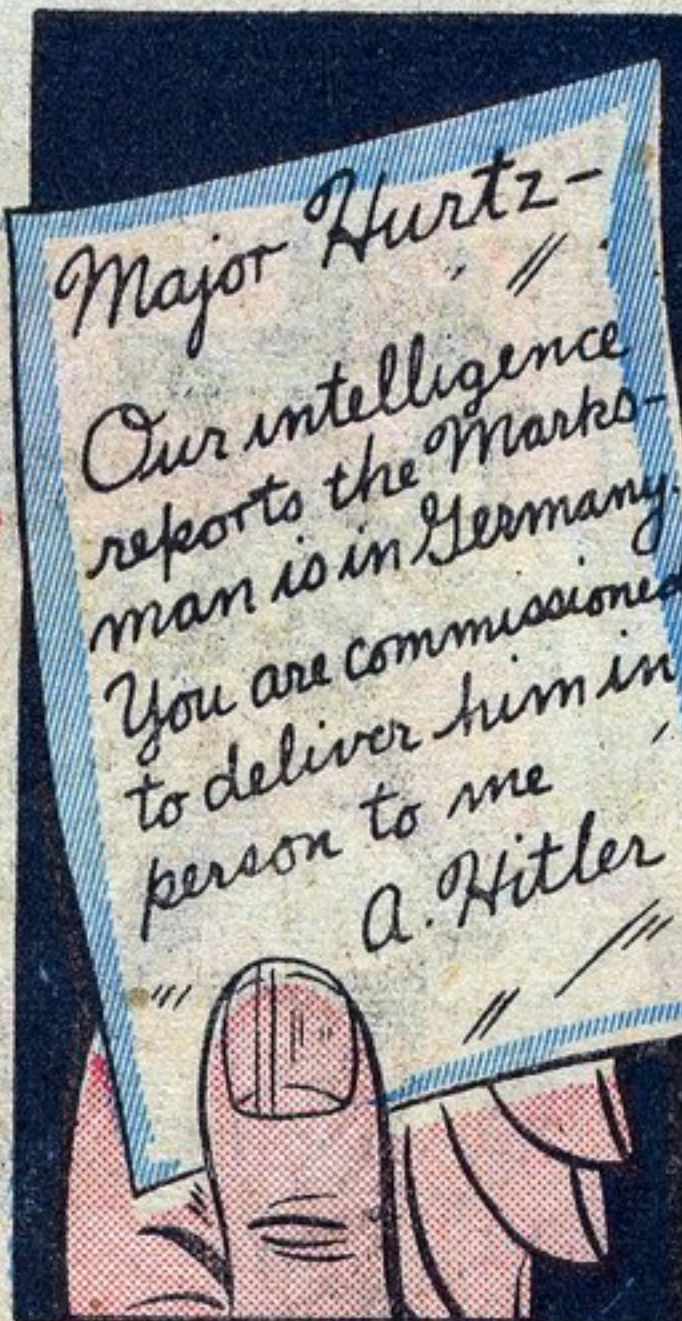 Major Hurtz-
Our intelligence
reports the Marks-
man is in Germany.
You are commissioned
to deliver him in
person to me
A. Hitler